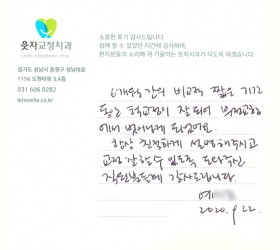 웃자교정치과
소중한 후기 감사드립니다.
함께 할 수 있었던 시간에 감사하며,
환자분들의 소리에 귀 기울이는 웃자치과가 되도록 하겠습니다.
경기도 성남시 중원구 성남대로
1156 도원타워 3,4층
031 606 0282
letssmile.co.kr
6개월 간의 비교적 짧은 기간
동안 턱교정이 잘 되어 부정교합
에서 벗어나게 되었어요.
항상 친절하게 설명해주시고
교정 잘 할 수 있도록 도와주신
직원분들께 감사드립니다.
예
2020. 9. 22.